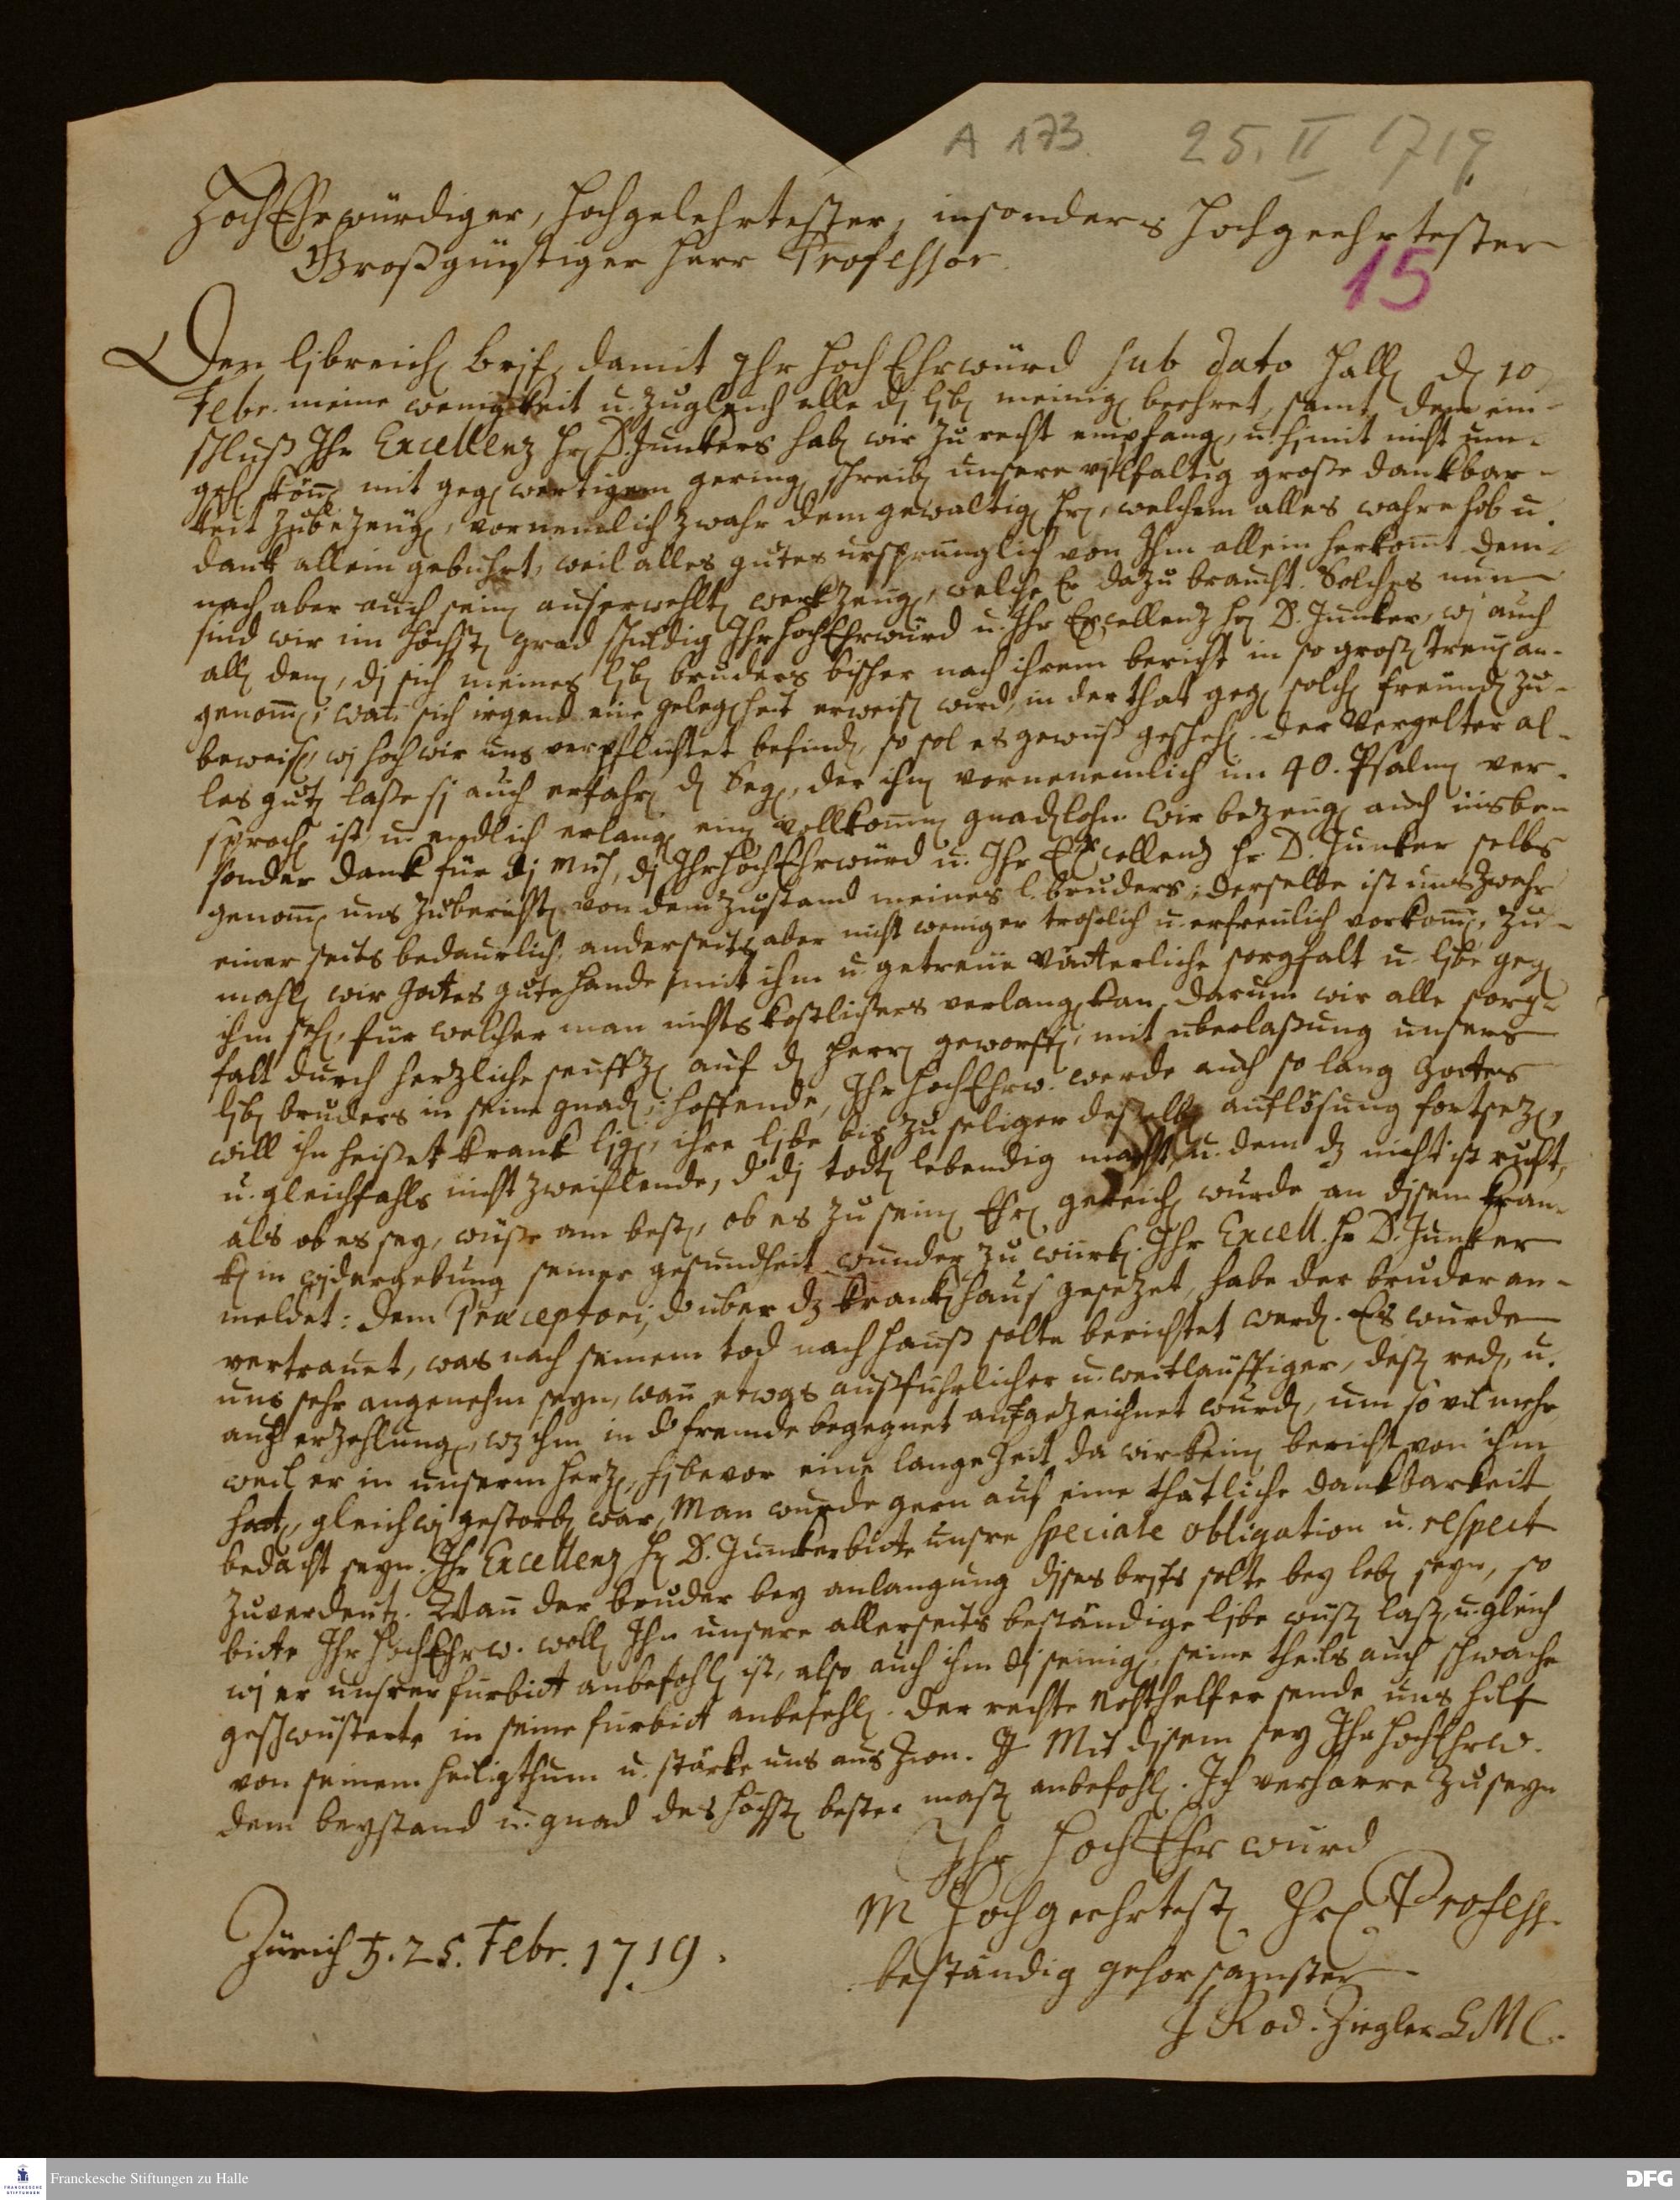 A 173. 25. II 1719
HochEhrwürdiger, Hochgelehrtester, insonders Hochgeehrtester
Großgünstiger Herr Professor.
15
Den libreich brif, damit Ihr HochEhrwürd sub dato Hall d 10
Febr. meine wenigkeit u. zugleich alle di lib meinig beehret, samt dem ein-
schluß Ihr Excellenz Hr D. Junkers hab wir zu recht empfang, u. himit nicht um-
geh könn mit gegwertigem gering schreib unsere vilfaltig große dankbar-
keit zubezeug, vornemlich zwahr dem gewaltig Hr, welchem alles wahre lob u.
dank allein gebührt, weil alles gutes ursprunglich von Ihm allein herkomt dem-
nach aber auch sein auserwehlt werkzeug, welche Er dazu braucht. Solches nun
sind wir im höchst grad schuldig Ihr HochEhrwürd u. Ihr Excellenz Hr D. Junker, wi auch
all den, di sich meines lib bruders bisher nach ihrem bericht in so groß treu an-
genomm; wann sich irgend eine geleg heit erweis wird, in der that geg solch freund zu-
beweis, wi hoch wir uns verpflichtet befind, so sol es gewuß gescheh. der Vergelter al-
les gut laße si auch erfahr d Seg, der ihn vornemlich im 40. Psalm ver-
sproch ist, u. endlich erlang ein vollkomm gnadlohn. Wir bezeug auch insbe-
sonder dank für di Müh, di Ihr HochEhrwürd u. Ihr Excellenz Hr D. Junker selbs
genomm uns zubericht von dem zustand meines l. bruders; derselbe ist uns zwahr
einer seits bedaurlich, anderseits aber nicht weniger trostlich u. erfreulich vorkomm, zu-
mahl wir Gottes gute hande mit ihm u. getreue vätterliche sorgfalt u. libe geg
ihm seh, für welcher man nichts kostlichers verlang kan, darum wir alle sorg-
falt durch herzliche seuffz auf d Herr geworff, mit uberlaßung unsers
lib bruders in seine gnad; hoffende, Ihr HochEhrw. werde auch so lang Gottes
will ihn heißet krank lig, ihre libe bis zu seliger deßelb auflösung fortsez,
u. gleichfahls nicht zweiflende, d di todt lebendig macht, u. dem dz nicht ist rufft,
als ob es sey, wüße am best, ob es zu sein Ehr gereich wurde an disem kran-
k in widergebung seiner gesundheit wunder zu würk. Ihr Excell. Hr D. Junker
meldet: dem Præceptori, d uber dz krankhaus gesezet, habe der bruder an-
vertrauet, was nach seinem tod nach hauß solte berichtet werd. Es wurde
uns sehr angenehm seyn, wann etwas außführlicher u. weitläuffiger, deß red, u.
auch erzehlung, wz ihm in d fremde begegnet aufgezeichnet wurd, um so vil mehr
weil er in unserm herz, hibevor eine lange zeit, da wir kein bericht von ihm
hatt, gleich wi gestorb war, Man wurde gern auf eine thätliche dankbarkeit
bedacht seyn. Ihr Excellenz Hr D. Junker bitte unsre speciale obligation u. respect
zuverdeut. Wann der bruder bey anlangung dises brifs solte bey leb seyn, so
bitte Ihr HochEhrw. woll Ihn unsere allerseits beständige libe wüß laß, u. gleich
wi er unsrer furbitt anbefohl ist, also auch ihm di seinig, seine theils auch schwache
geschwüsterte in seine furbitt anbefehl. der rechte Nohthelfer sende uns hilf
von seinem heiligthum u. stärke uns aus Zion. Mit disem sey Ihr HochEhrw.
dem beystand u. gnad des höchst bester maß anbefohl. Ich verharre zu seyn
Ihr HochEhrwürd
M Hochgeehrtest Hr Profess.
beständig gehorsamster
J Rod. Ziegler SMC.
Zürich 25. Febr. 1719.
Franckesche Stiftungen zu Halle
DFG